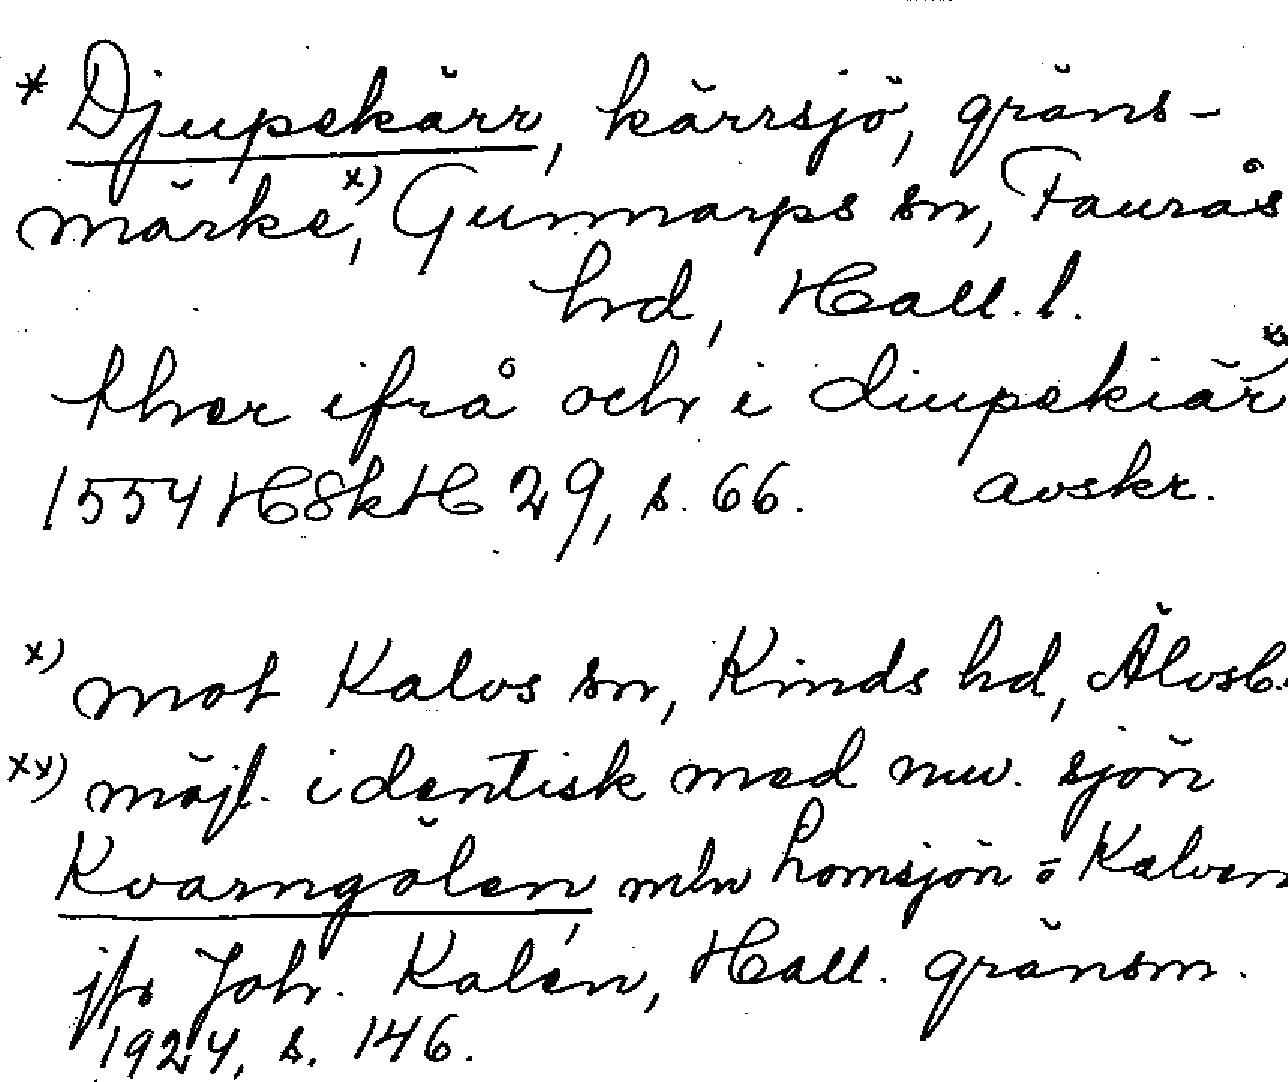 * Djupekärr, kärrsjö, gräns-
märke,x) Gunnarps sn, Faurås
hrd, Hall. l.
ther ifrå och i diupekiär xx)
1554 HSkH 29, s. 66. avskr.
x) mot Kalvs sn, Kinds hd, Älvsb.
xx) möjl. identisk med nuv. sjön
Kvarngölen, mln Lomsjön o Kalven
jfr Joh. Kalén, Hall. gränsm.
1924, s. 146.